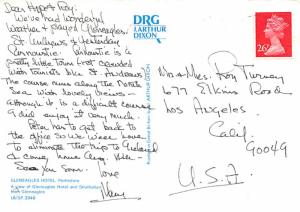 Dear Hope & Roy:
We've had wonderful
weather & played Gleneagles,
St. Andrews & yesterday
Carnoustie. Carnoustie is a
pretty little town just crowded
with tourists like St. Andrews.
The course runs along the North
Sea with lovely views –
although it is a difficult course
I did enjoy it very much.
Peter has to get back to
the office so we were
to eliminate the trip to Ireland
&
See you soon.
Love
GLENEAGLES HOTEL, Perthshire
A view of Gleneagles Hotel and
LB/SP 2948
DRG
J. ARTHUR
DIXON
26p
Mr & Mrs. Roy Turney
677 Elkins Road
Los Angeles
Calif.
90049
U.S.A.